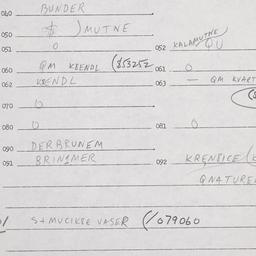 040 BUNDER
050 $ ) MUTNE
051 0 052 KALAMUTHE QU
060 QM KBENDL ($53252 061 0
062 KBENDL 063 — QM KVART
070 0
080 0 081 0
090 DERBRUNEM
091 BRINSMER 092 KRENTICE (
GNATUREN
S+MUCIKBE VASER (/079060